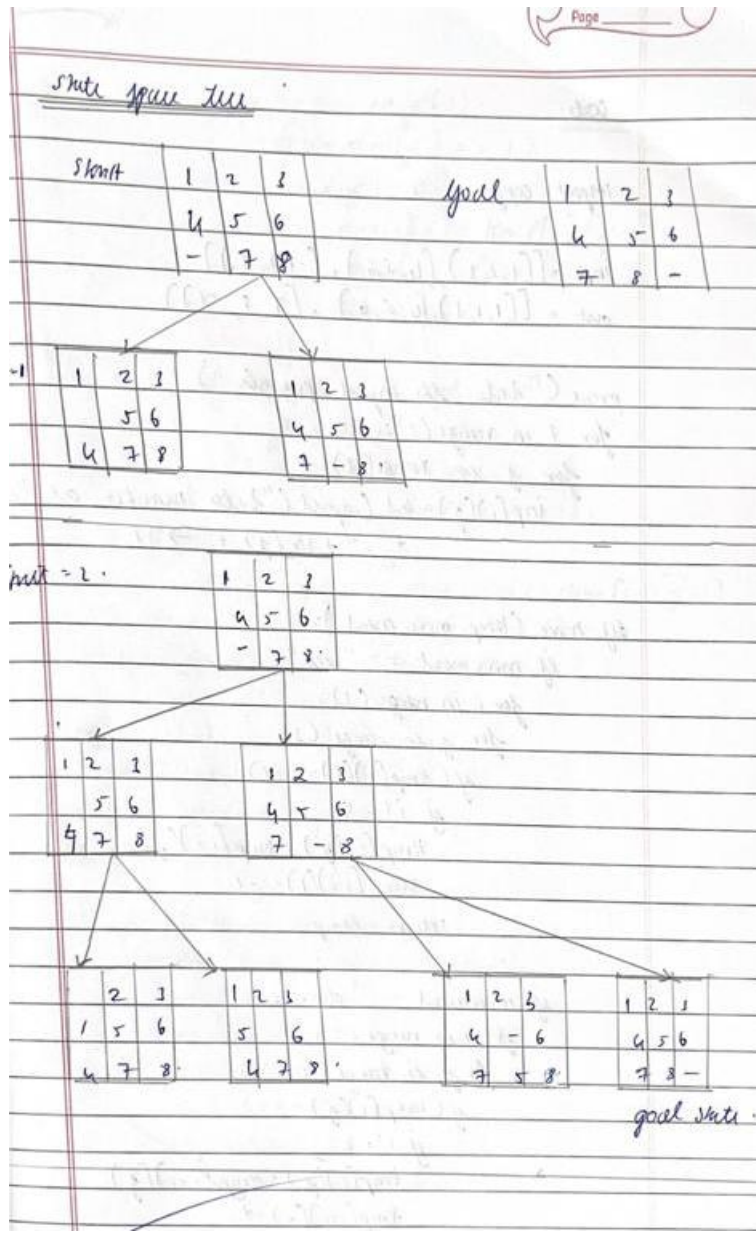 Page
State space tree
Start
1 2 3
4 5 6
- 7 8
Goal
1 2 3
4 5 6
7 8 -
-1
1 2 3
5 6
4 7 8
1 2 3
4 5 6
7 - 8
= 2.
1 2 3
4 5 6
- 7 8
1 2 3
5 6
4 7 8
1 2 3
4 5 6
7 - 8
2 3
1 5 6
4 7 8
1 2 3
5 6
4 7 8
1 2 3
4 - 6
7 5 8
1 2 3
4 5 6
7 8 -
goal state